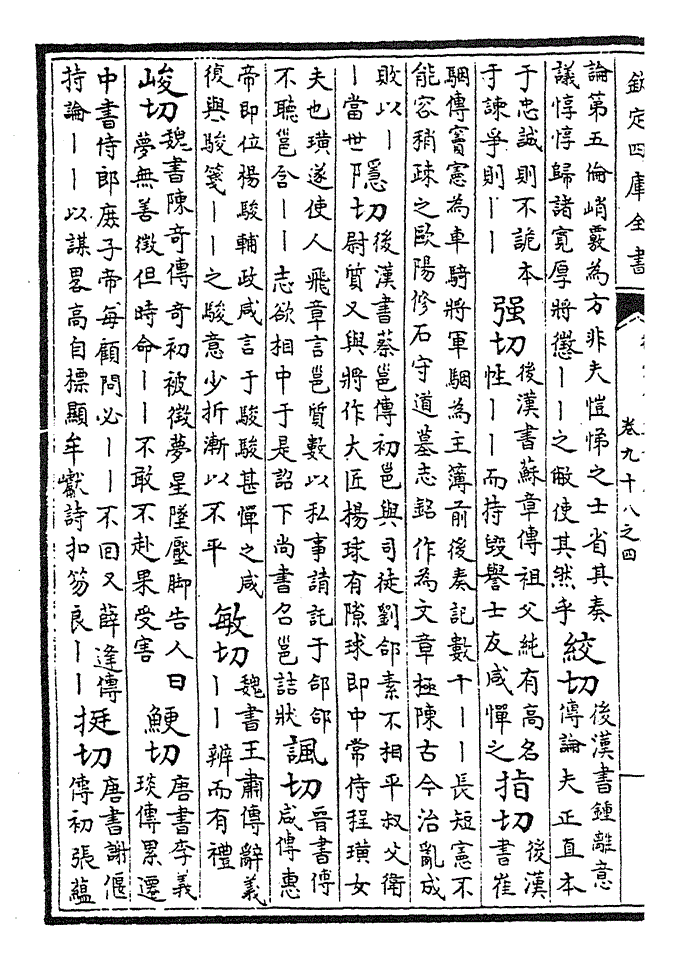 欽定四庫全書
卷九十八之四
論第五倫峭覈為方非夫愷悌之士省其奏
議惇惇歸諸寛厚將懲丨丨之敝使其然乎
絞切
後漢書鍾離意
傳論夫正直本
于忠誠則不詭本
于諫爭則丨丨
强切
後漢書蘇章傳祖父純有高名
性丨丨而持毀譽士友咸憚之
指切
後漢
書崔
駰傳竇憲為車騎將軍駰為主簿前後奏記數十丨丨長短憲不
能容稍疎之歐陽修石守道墓志銘作為文章極陳古今治亂成
敗以丨
丨當世
隱切
後漢書蔡邕傳初邕與司徒劉郃素不相平叔父衛
尉質又與將作大匠揚球有隙球即中常侍程璜女
夫也璜遂使人飛章言邕質數以私事請託于郃郃
不聽邕含丨丨志欲相中于是詔下尚書名邕詰狀
諷切
晉書傅
咸傳惠
帝即位楊駿輔政咸言于駿駿甚憚之咸
復與駿箋丨丨之駿意少折漸以不平
敏切
魏書王肅傳辭義
丨丨辨而有禮
峻切
魏書陳奇傳奇初被徵夢星墜壓脚告人曰
夢無善徵但時命丨丨不敢不赴果受害
鯁切
唐書李義
琰傳累遷
中書侍郎庶子帝每顧問必丨丨不回又薛逢傳
持論丨丨以謀畧高自標顯牟巘詩扣笏良丨丨
挺切
唐書謝偃
傳初張蘊